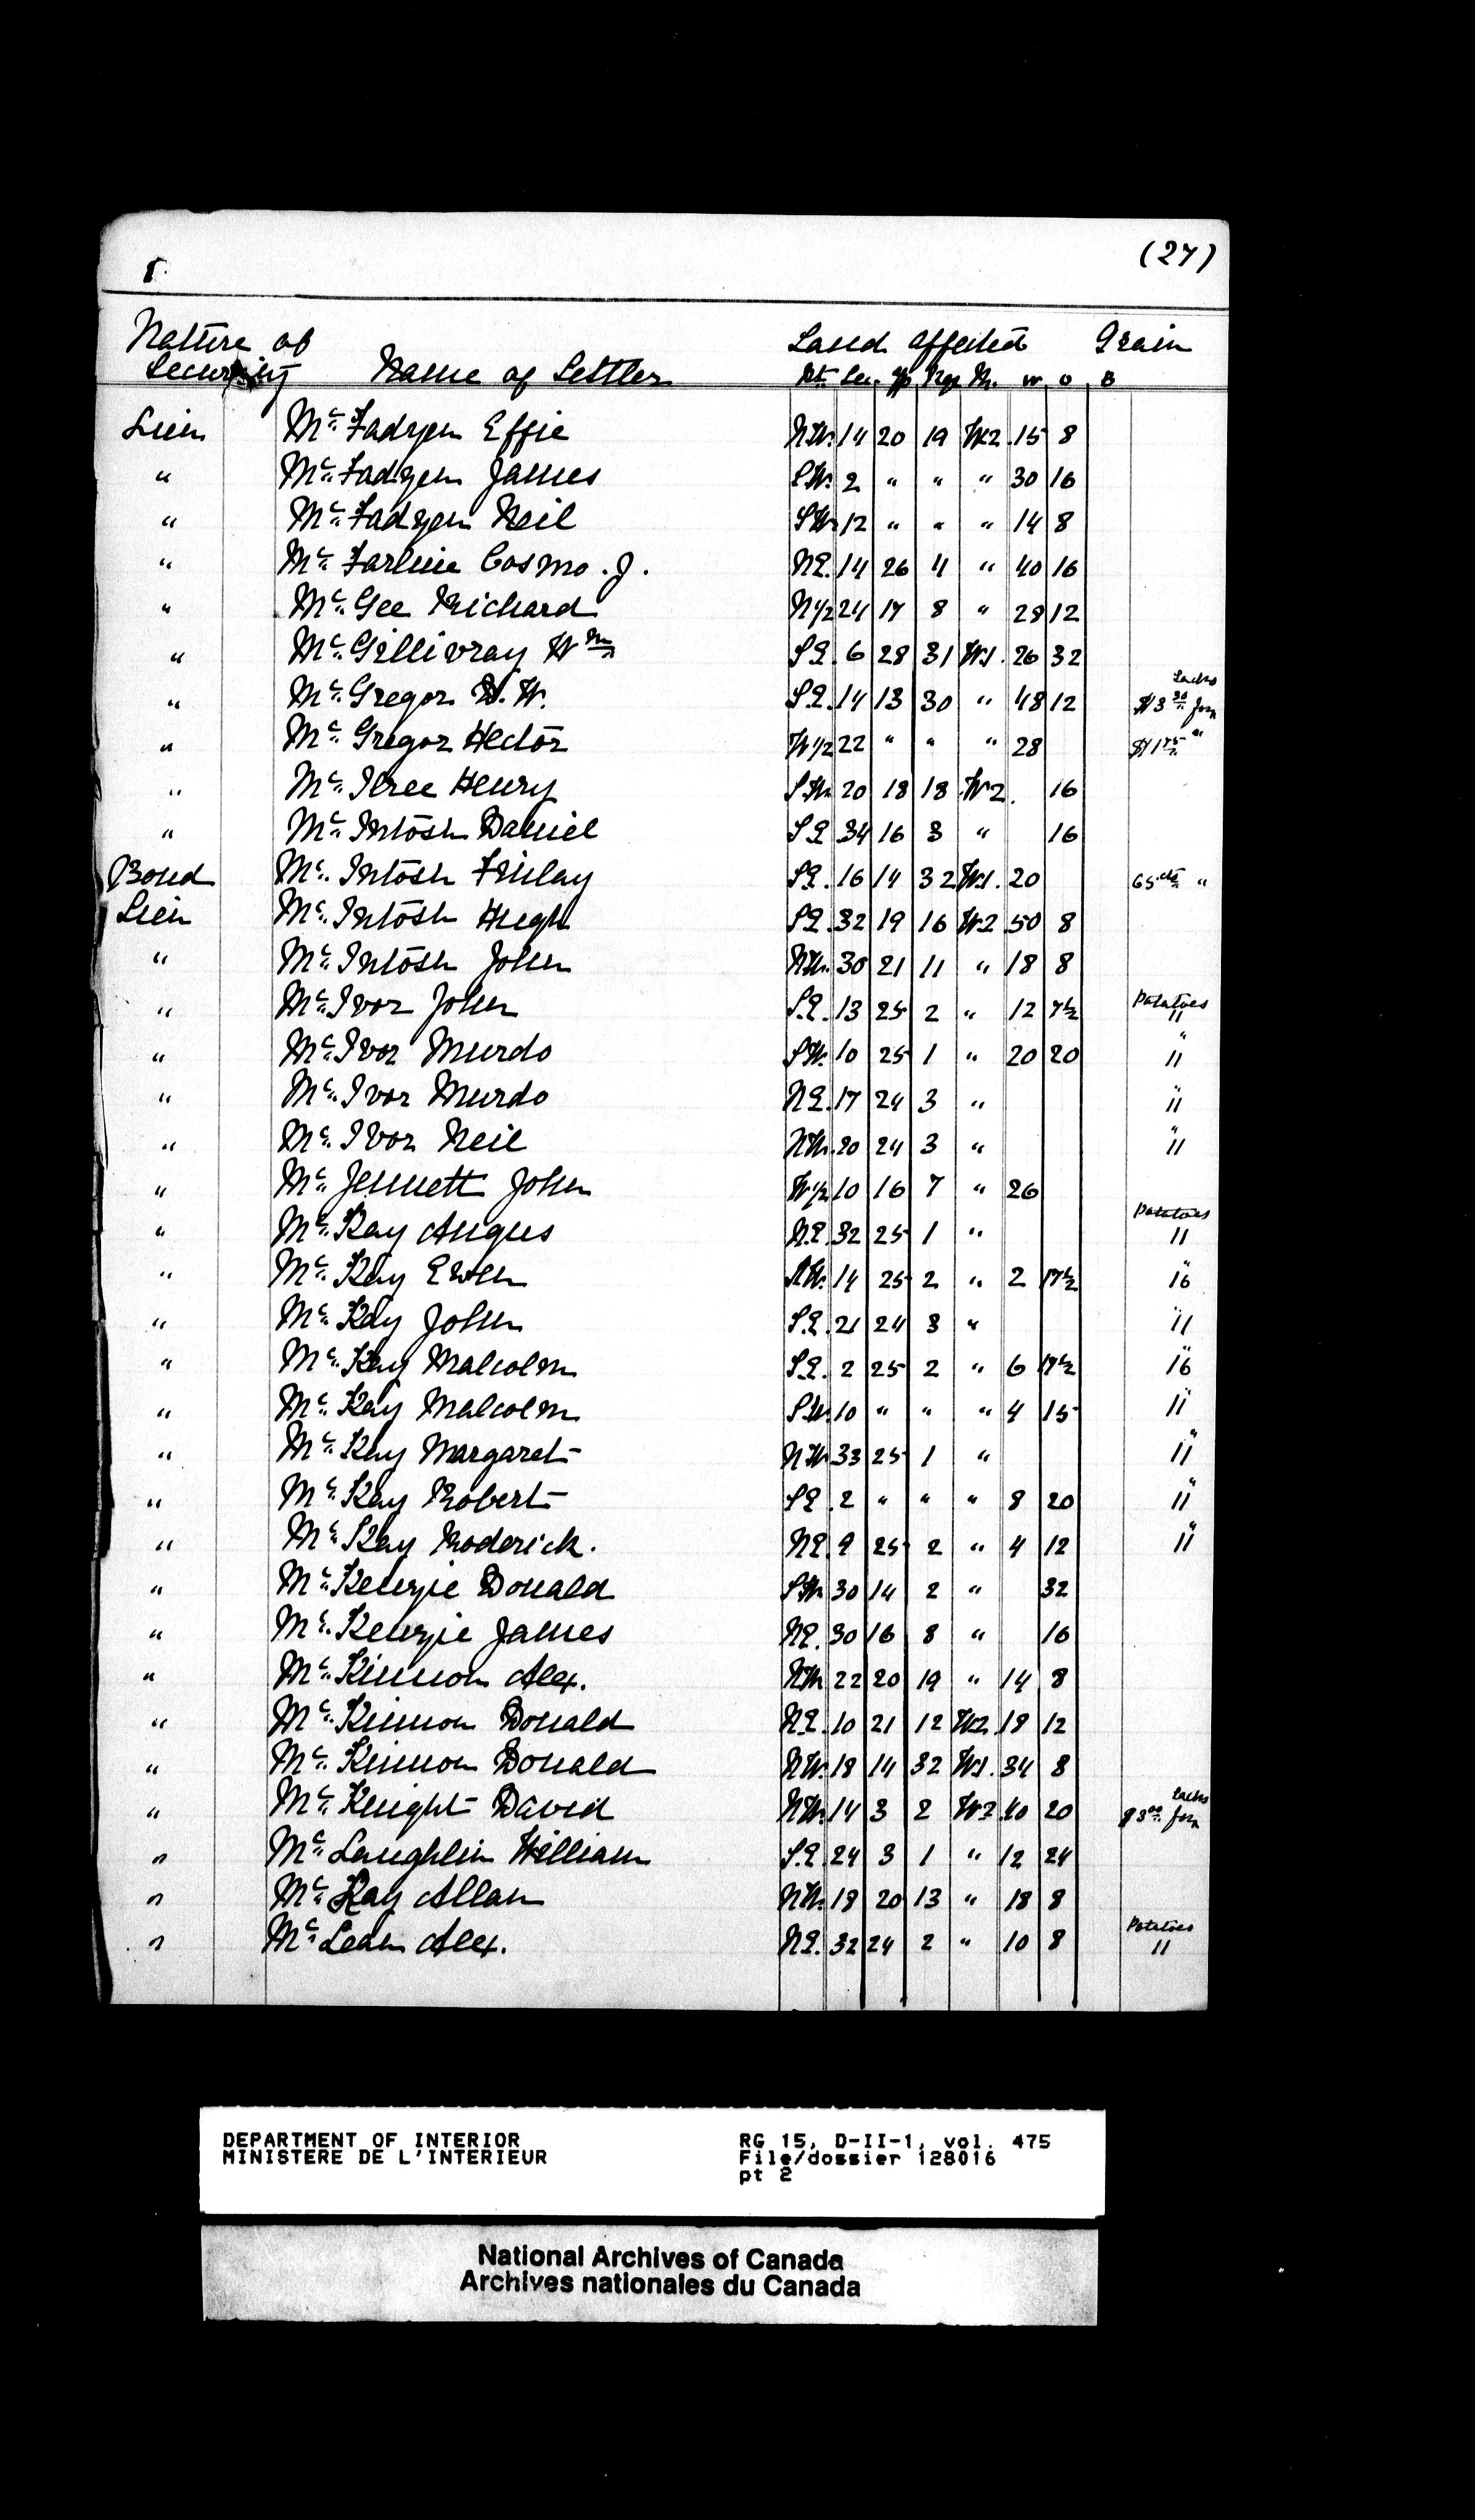 (27)
Nature of Land affected Grain
Security Name of Settler Pt. Sec. Tp Rge M. W O B
Lien Mc. Fadyen Effie N.W. 14 20 19 W2 15 8
" Mc. Fadyen James S.W. 2 " " " 30 16
" Mc. Fadyen Neil S.W. 12 " " " 14 8
" Mc. Farline Cosmo. J. N.E. 14 26 4 " 40 16
" Mc. Gee Richard N½ 24 17 8 " 28 12
" Mc. Gillivray Wm S.E. 6 28 31 W1. 26 32
" Mc. Gregor D. W. S.E. 14 13 30 " 48 12 $3.30 for sacks
" Mc. Gregor Hector W½ 22 " " " 28 $1.75 "
" Mc. Ilree Henry S.W. 20 18 18 W2. 16
" Mc. Intosh Daniel S.E. 34 16 3 " 16
Bond Mc. Intosh Finlay S.E. 16 14 32 W1. 20 65 cts "
Lien Mc. Intosh Hugh S.E. 32 19 16 W2 50 8
" Mc. Intosh John N.W. 30 21 11 " 18 8
" Mc. Ivor John S.E. 13 25 2 " 12 7½ Potatoes 11
" Mc. Ivor Murdo S.W. 10 25 1 " 20 20 " 11
" Mc. Ivor Murdo N.E. 17 24 3 " " 11
" Mc. Ivor Neil N.W. 20 24 3 " " 11
" Mc. Jennett John W½ 10 16 7 " 26
" Mc. Kay Angus N.E. 32 25 1 " Potatoes 11
" Mc. Kay Ewen N.W. 14 25 2 " 2 17½ " 16
" Mc. Kay John S.E. 21 24 3 " " 11
" Mc. Kay Malcolm S.E. 2 25 2 " 6 17½ " 16
" Mc. Kay Malcolm S.W. 10 " " " 4 15 " 11
" Mc. Kay Margaret N.W. 33 25 1 " " 11
" Mc. Kay Robert S.E. 2 " " " 8 20 " 11
" Mc. Kay Roderick. N.E. 9 25 2 " 4 12 " 11
" Mc. Kenzie Donald S.W. 30 14 2 " 32
" Mc. Kenzie James N.E. 30 16 8 " 16
" Mc. Kinnon Alex. N.W. 22 20 19 " 14 8
" Mc. Kinnon Donald N.E. 10 21 12 W2. 18 12
" Mc. Kinnon Donald N.W. 18 14 32 W1. 34 8
" Mc. Knight David N.W. 14 3 2 W2 40 20 $3.00 for sacks
" Mc. Laughlin William S.E. 24 3 1 " 12 24
" Mc. Kay Allan N.W. 18 20 13 " 18 8
" Mc. Lean Alex. N.E. 32 24 2 " 10 8 Potatoes 11
DEPARTMENT OF INTERIOR RG 15, D-II-1, vol. 475
MINISTERE DE L'INTERIEUR File/dossier 128016
pt 2
National Archives of Canada
Archives nationales du Canada